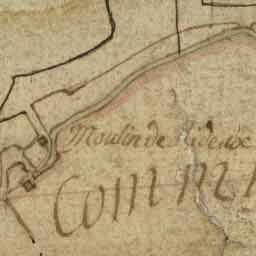 Moulin de Rideaux
Comm